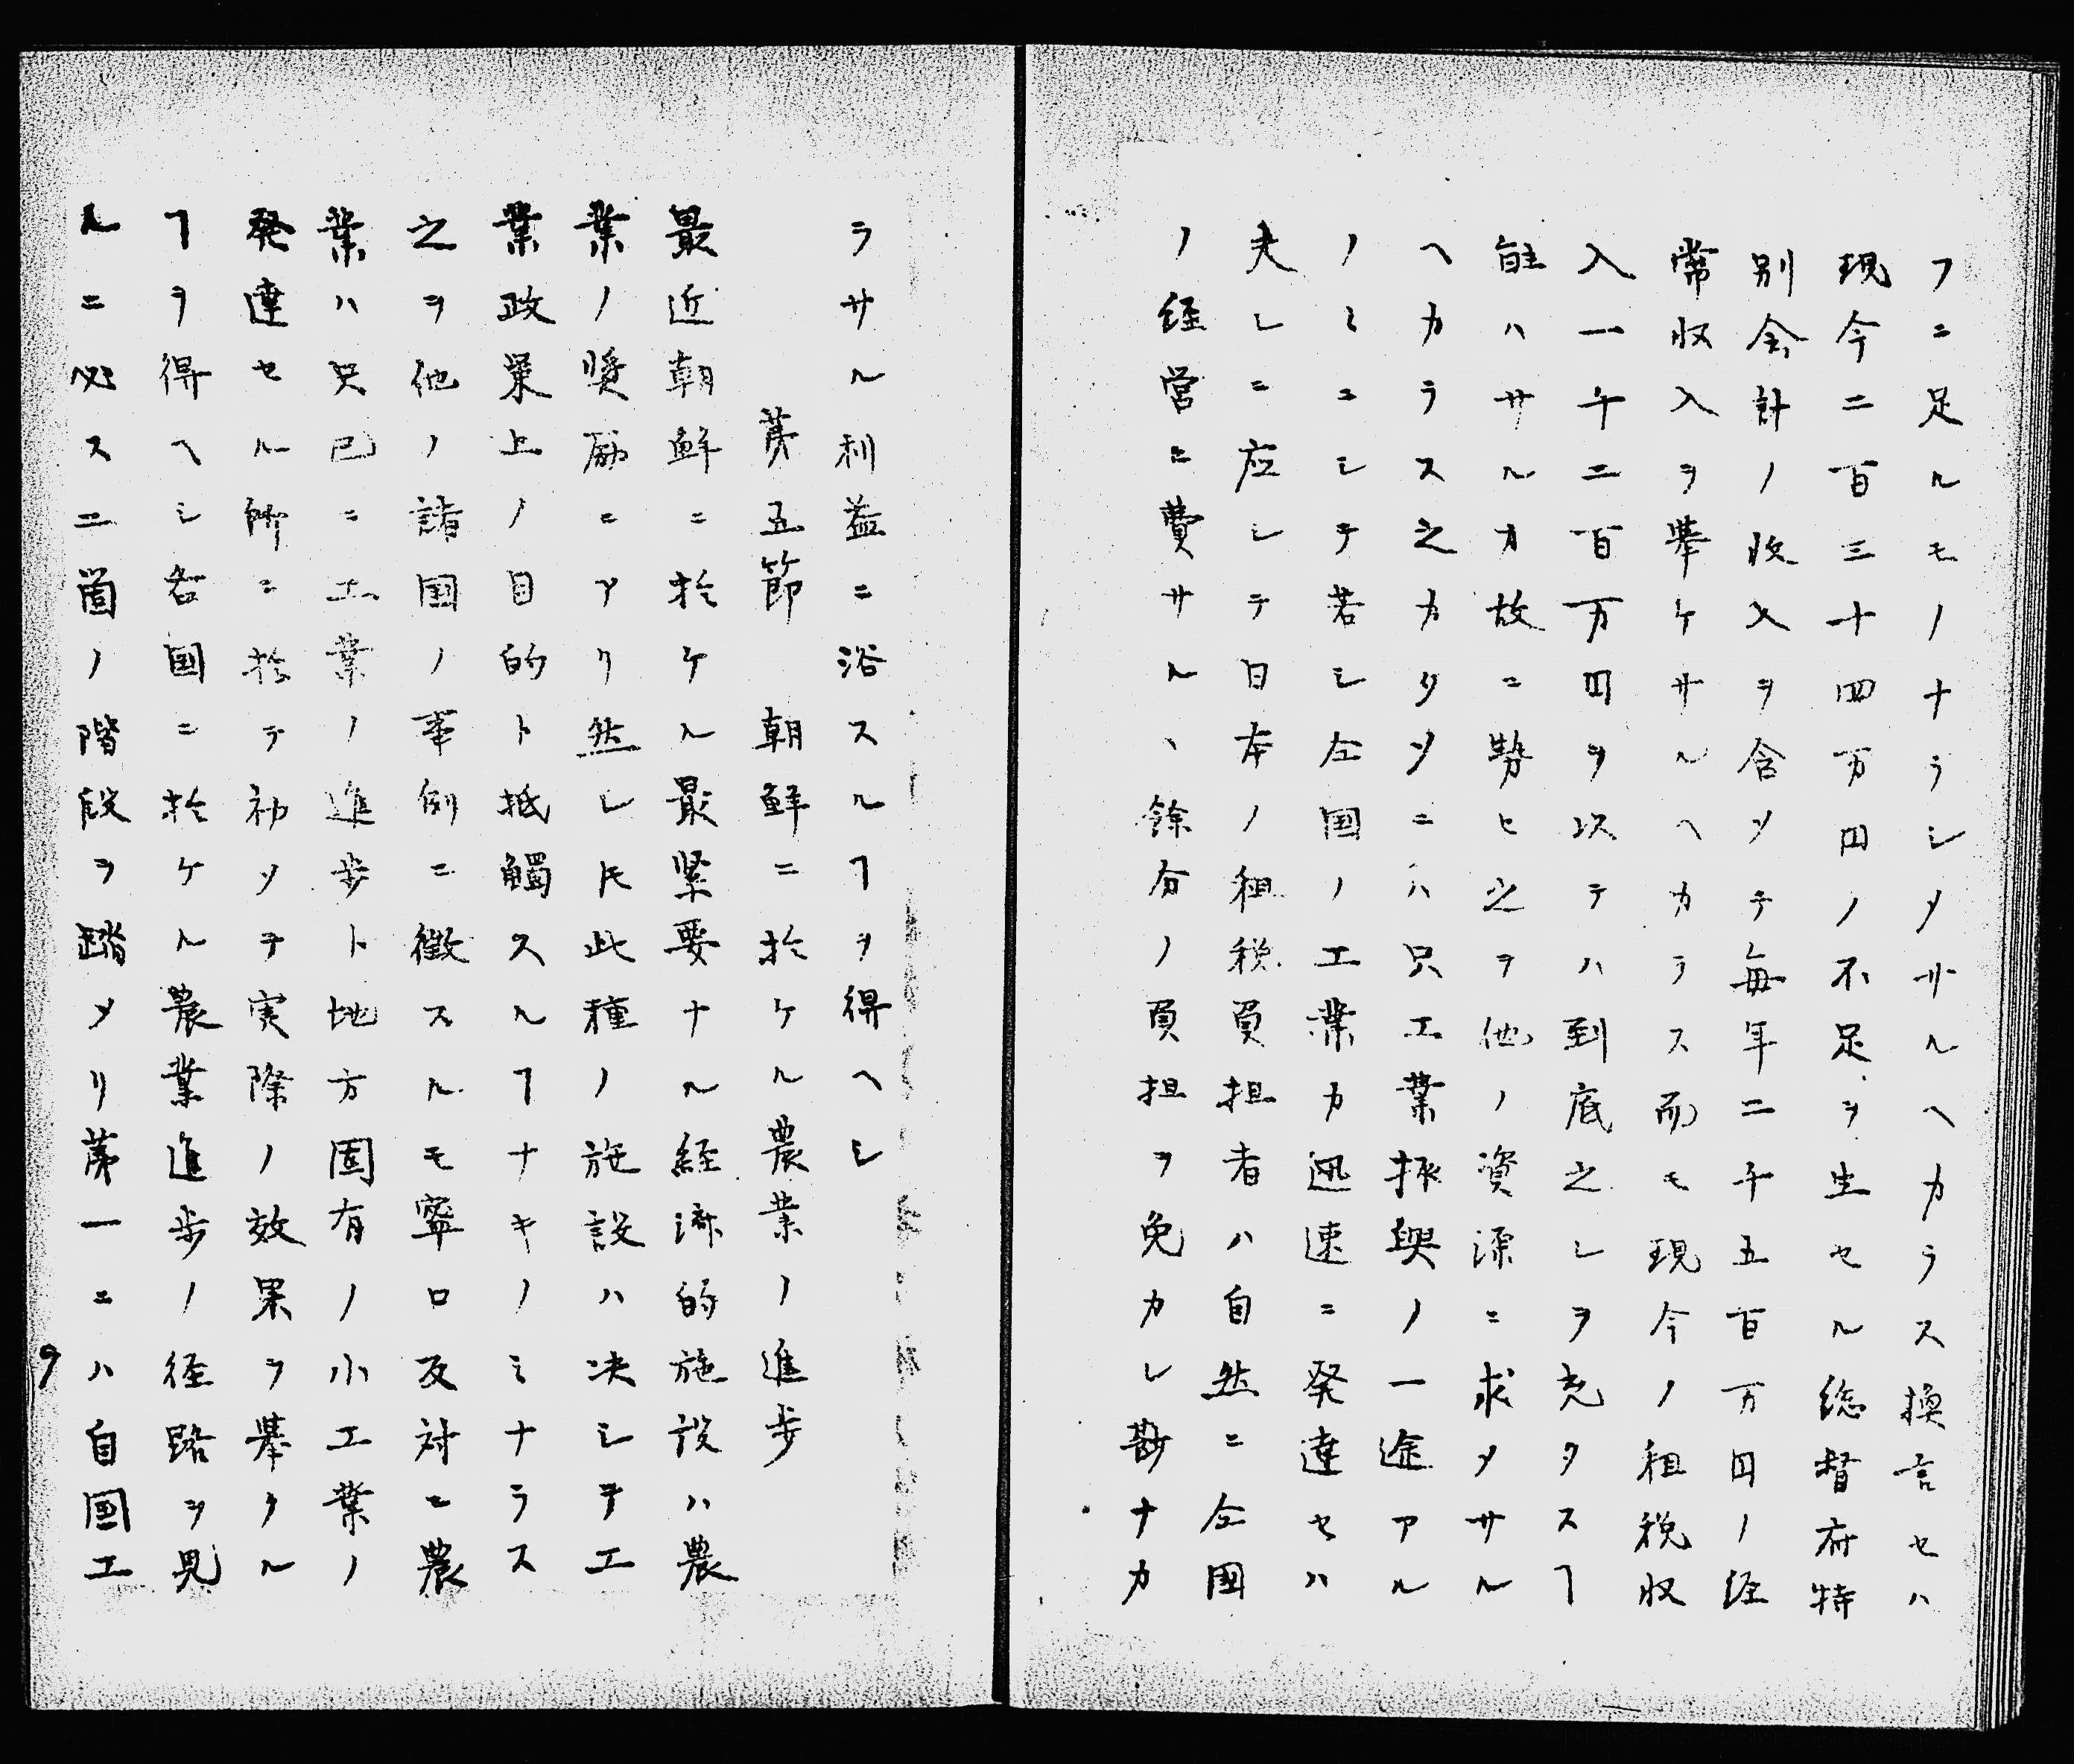 フニ足ルモノナラシメサルヘカラス換言セハ
現今二百三十四万円ノ不足ヲ生セル総督府特
別会計ノ収入ヲ含メテ毎年二千五百万円ノ経
常収入ヲ挙ケサルヘカラス而モ現今ノ租税収
入一千二百万円ヲ以テハ到底之レヲ充タスヿ
能ハサルカ故ニ勢ヒ之ヲ他ノ資源ニ求メサル
ヘカラス之カタメニハ只工業振興ノ一途アル
ノミニシテ若シ全国ノ工業カ迅速ニ発達セハ
夫レニ応シテ日本ノ租税負担者ハ自然ニ全国
ノ経営ニ費サル、餘分ノ負担ヲ免カレ尠ナカ
ラサル利益ニ浴スルヿヲ得ヘシ
第五節 朝鮮ニ於ケル農業ノ進歩
最近朝鮮ニ於ケル最緊要ナル経済的施設ハ農
業ノ奨励ニアリ然レ𪜈此種ノ施設ハ决シテ工
業政策上ノ目的ト抵觸スルヿナキノミナラス
之ヲ他ノ諸国ノ事例ニ徴スルモ寧ロ反対ニ農
業ハ只已ニ工業ノ進歩ト地方固有ノ小工業ノ
発達セル所ニ於テ初メテ実際ノ效果ヲ挙クル
ヿヲ得ヘシ各国ニ於ケル農業進歩ノ径路ヲ見
ルニ必ス二箇ノ階段ヲ踏メリ第一ニハ自国工
9